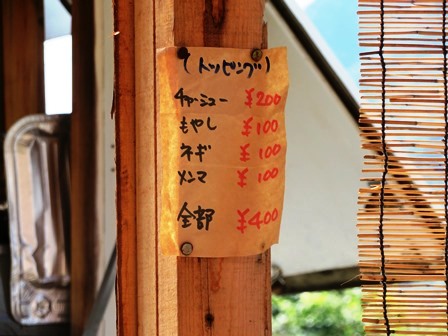 (トッピング)
チャーシュー ¥200
もやし ¥100
ネギ ¥100
メンマ ¥100
全部 ¥400